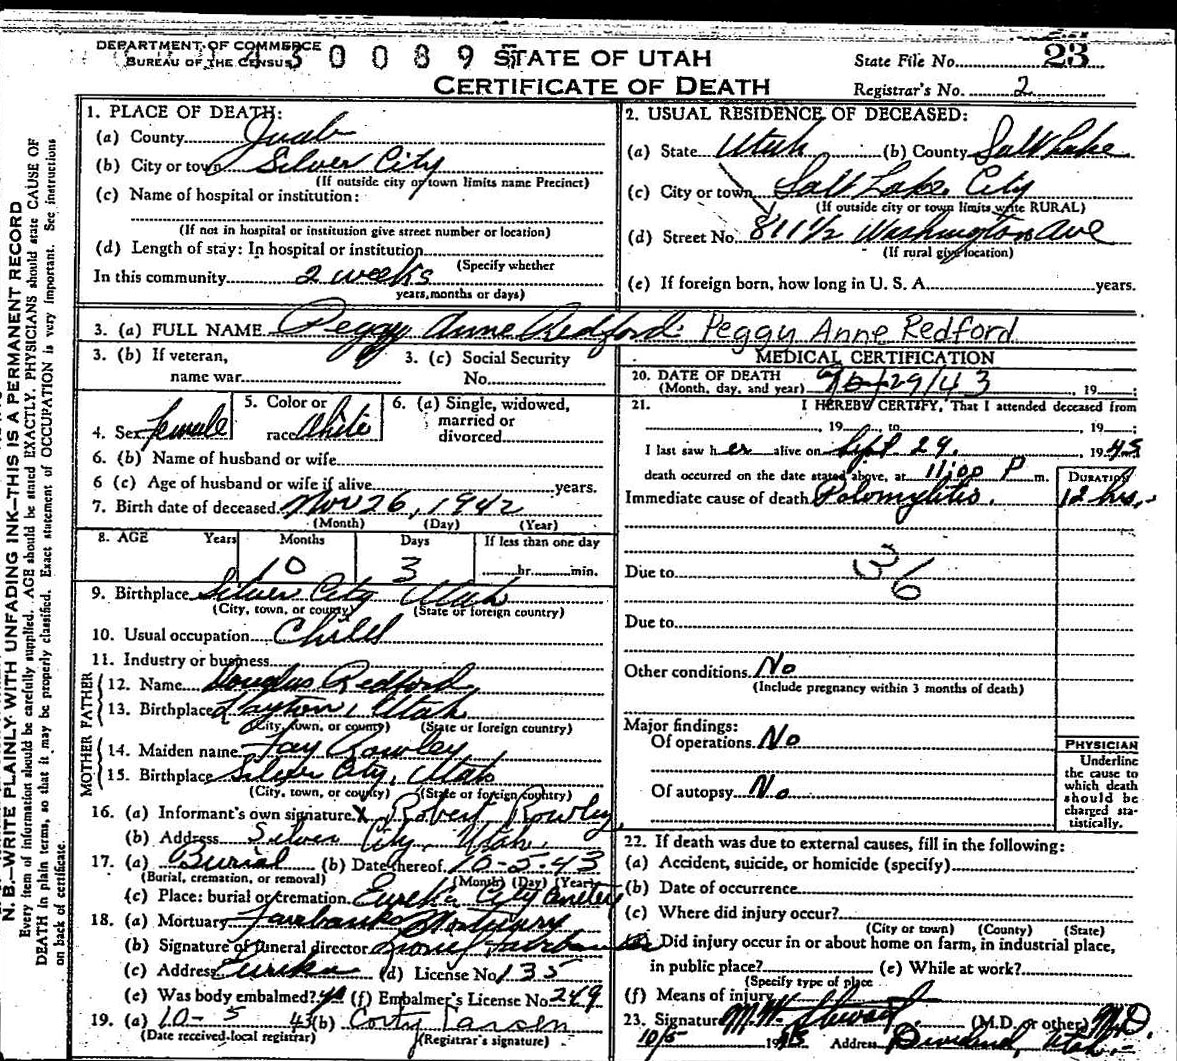 DEPARTMENT OF COMMERCE
BUREAU OF THE CENSUS
0 0 8 9
STATE OF UTAH
CERTIFICATE OF DEATH
State File No. 23
Registrar's No. 2
N. B.—WRITE PLAINLY WITH UNFADING INK—THIS IS A PERMANENT RECORD
Every item of information should be carefully supplied. AGE should be stated EXACTLY. PHYSICIANS should state CAUSE OF
DEATH in plain terms, so that it may be properly classified. Exact statement of OCCUPATION is very important. See instructions
on back of certificate.
1. PLACE OF DEATH:
(a) County Juab
(b) City or town Silver City
(If outside city or town limits name Precinct)
(c) Name of hospital or institution:
(If not in hospital or institution give street number or location)
(d) Length of stay: In hospital or institution
(Specify whether
In this community 2 weeks
years, months or days)
2. USUAL RESIDENCE OF DECEASED:
(a) State Utah (b) County Salt Lake
(c) City or town Salt Lake City
(If outside city or town limits write RURAL)
(d) Street No. 811 1/2 Washington Ave
(If rural give location)
(e) If foreign born, how long in U. S. A. years.
3. (a) FULL NAME Peggy Anne Redford: Peggy Anne Redford
3. (b) If veteran,
name war
3. (c) Social Security
No.
4. Sex female
5. Color or
race White
6. (a) Single, widowed,
married or
divorced
6. (b) Name of husband or wife
6 (c) Age of husband or wife if alive years.
7. Birth date of deceased Nov 26, 1942
(Month) (Day) (Year)
8. AGE Years Months Days If less than one day
10 3 hr. min.
9. Birthplace Silver City Utah
(City, town, or county) (State or foreign country)
10. Usual occupation Child
11. Industry or business
FATHER
12. Name Douglas Redford
13. Birthplace Layton, Utah
(City, town, or county) (State or foreign country)
MOTHER
14. Maiden name Fay Rowley
15. Birthplace Silver City, Utah
(City, town, or county) (State or foreign country)
16. (a) Informant's own signature X Robert Rowley
(b) Address Silver City, Utah.
17. (a) Burial (b) Date thereof 10-5-43
(Burial, cremation, or removal) (Month) (Day) (Year)
(c) Place: burial or cremation Eureka City Cemetery
18. (a) Mortuary Fairbanks Mortuary
(b) Signature of funeral director Fairbanks
(c) Address Eureka (d) License No. 135
(e) Was body embalmed? (f) Embalmer's License No. 249
19. (a) 10-5 43 (b) Larsen
(Date received local registrar) (Registrar's signature)
MEDICAL CERTIFICATION
20. DATE OF DEATH 29/43
(Month, day, and year) , 19 ;
21. I HEREBY CERTIFY, That I attended deceased from
, 19 , to , 19 ;
I last saw her alive on Sept 29, 1943
death occurred on the date stated above, at 11:00 P m.
DURATION
Immediate cause of death Polomylitis. 12 hrs.
Due to 36
Due to
Other conditions No
(Include pregnancy within 3 months of death)
Major findings:
Of operations No
Of autopsy No
PHYSICIAN
Underline
the cause to
which death
should be
charged sta-
tistically.
22. If death was due to external causes, fill in the following:
(a) Accident, suicide, or homicide (specify)
(b) Date of occurrence
(c) Where did injury occur?
(City or town) (County) (State)
Did injury occur in or about home on farm, in industrial place,
in public place? (e) While at work?
(Specify type of place
(f) Means of injury
23. Signature Stewart (M.D. or other) M.D.
10/5 1943 Address Dividend Utah